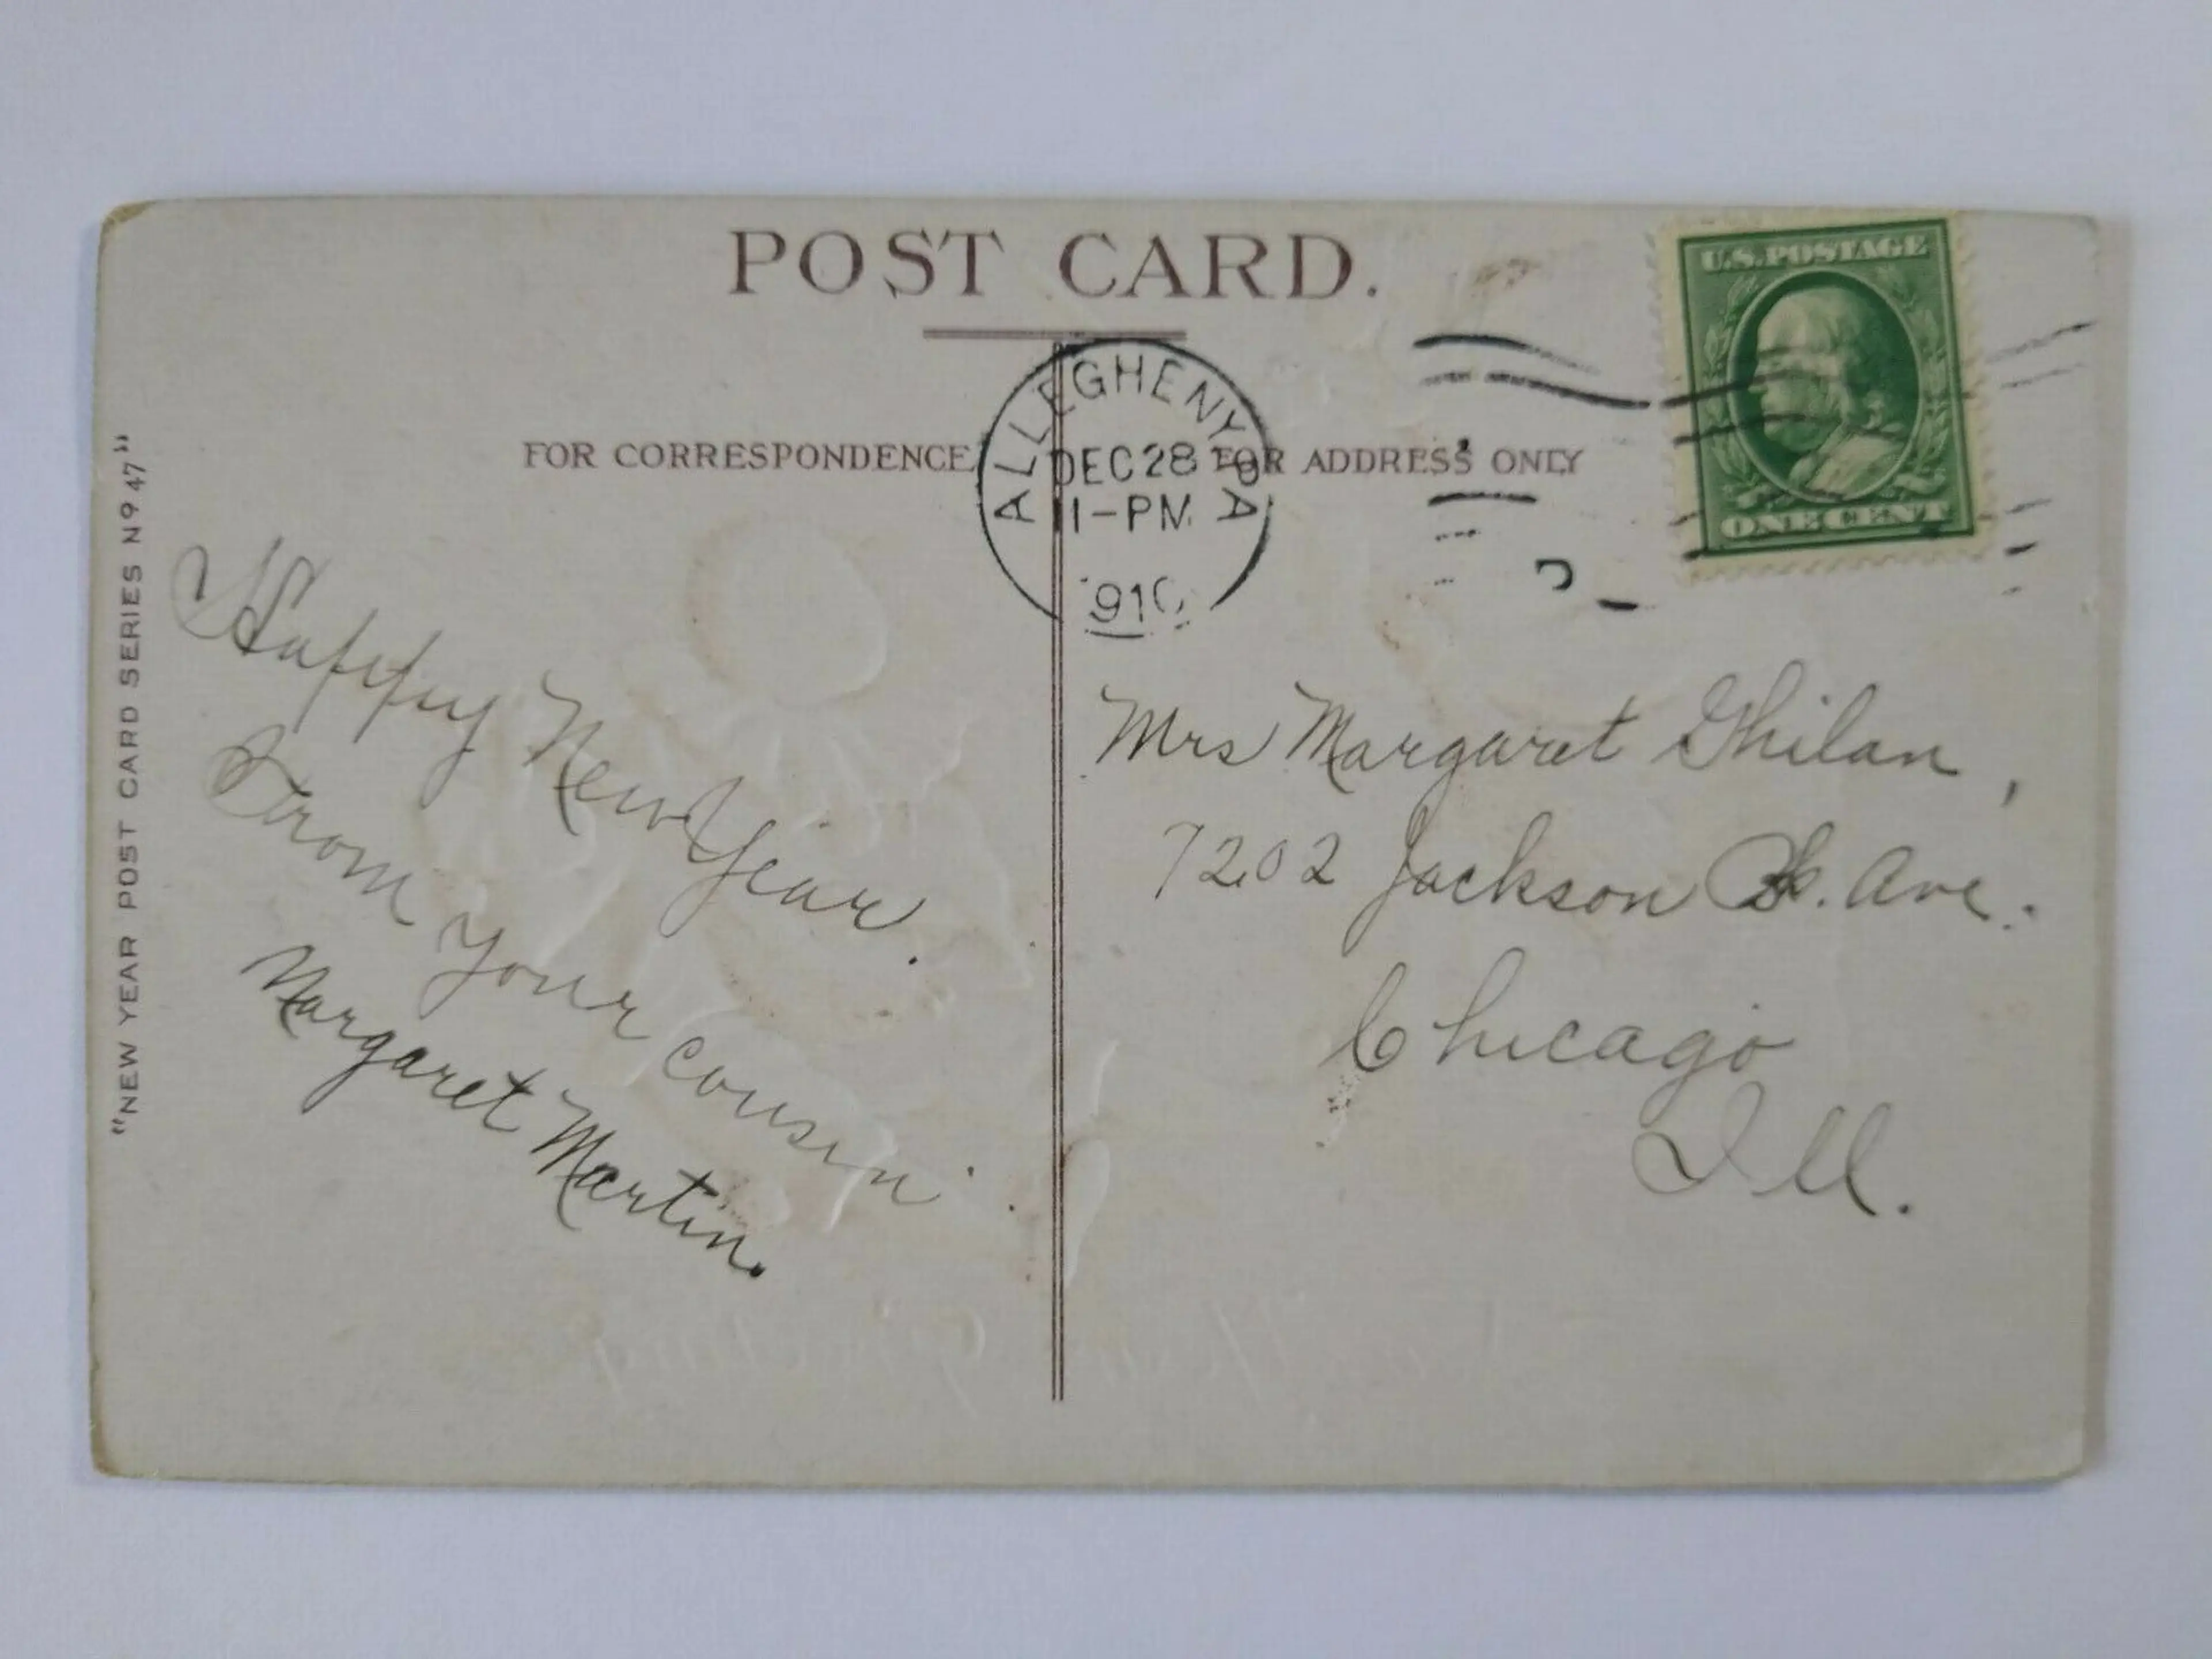 POST CARD.
FOR CORRESPONDENCE
FOR ADDRESS ONLY
U.S. POSTAGE
ONE CENT
ALLEGHENY PA
DEC 28
11-PM
1910
"NEW YEAR POST CARD SERIES Nº 47"
Happy New Year.
From your cousin
Margaret Martin.
Mrs Margaret Ghilan,
7202 Jackson Pk. Ave.
Chicago
Ill.